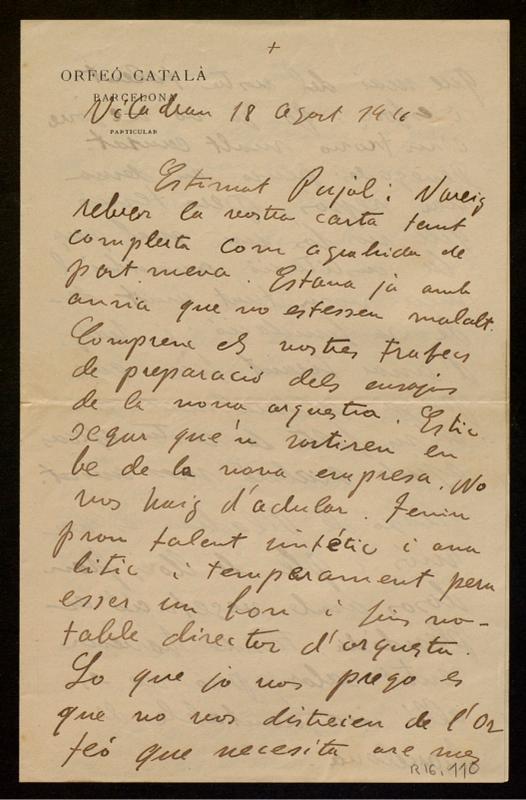 +
ORFEÓ CATALÀ
BARCELONA
Viladrau 18 Agost 191
PARTICULAR
Estimat Pujol: Vareig
rebrer la vostra carta tant
complerta com agrahida de
part meva. Estava jà amb
ansia que no estessen malalt.
Comprenc els vostres trafecs
de preparació dels ensajos
de la nova orquestra. Estic
segur que'n sortiren en
be de la nova empresa. No
vos haig d'adular. Teniu
prou talent sintétic i ana
litic i temperament pera
esser un bon i fins no-
table director d'orquesta.
Lo que jo vos prego es
que no vos distreieu de l'Or
feó que necesita are mes
R16, 110